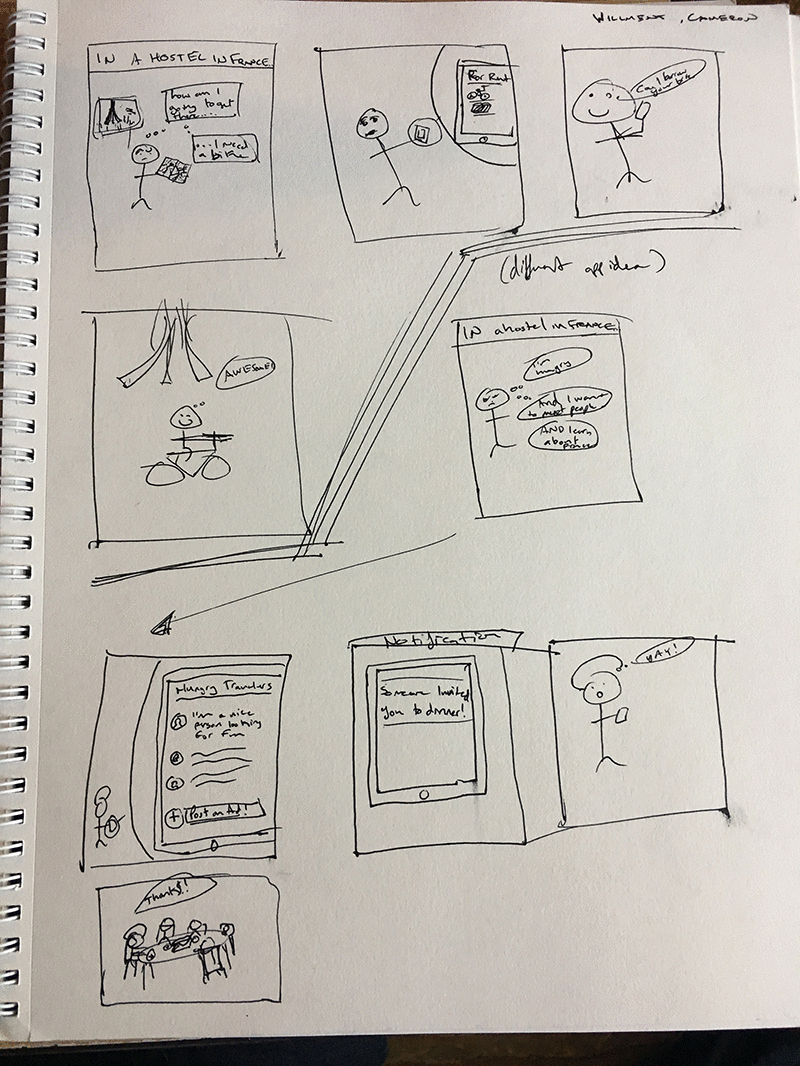 WILLMENT, CAMERON
IN A HOSTEL IN FRANCE...
how am I
going to get
there....
... I need
a bike
For Rent
Can I borrow
your bike
AWESOME!
(different app idea)
IN a hostel in FRANCE..
I'm
hungry
And I want
to meet people
AND learn
about France
Hungry Travelers
I'm a nice
person looking
for fun
+ Post an Ad!
Notification
Someone Invited
you to dinner!
YAY!
Thanks!!